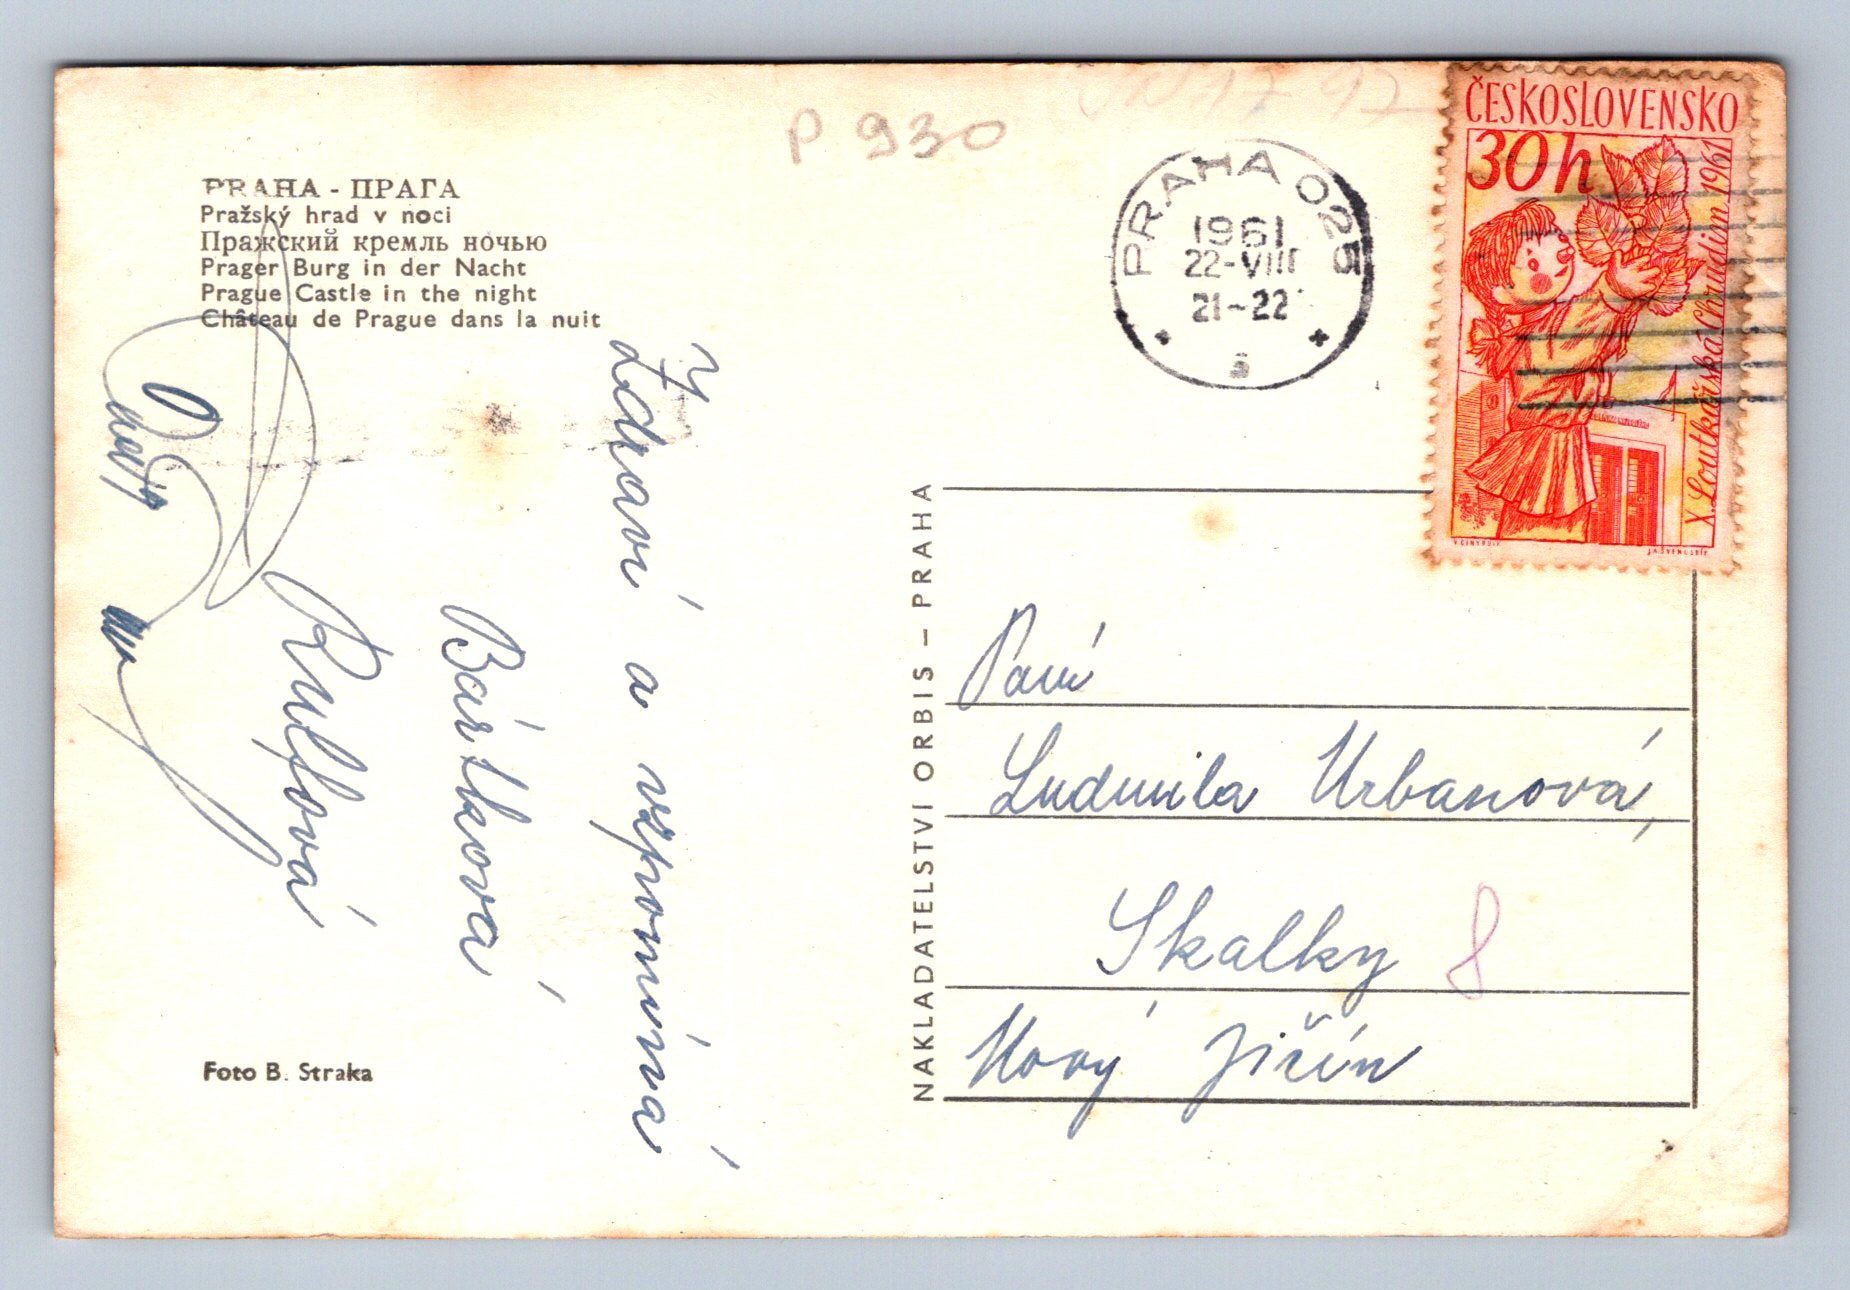 P 930
PRAHA - ПРАГА
Pražský hrad v noci
Пражский кремль ночью
Prager Burg in der Nacht
Prague Castle in the night
Château de Prague dans la nuit
Zdraví a vzpomíná
Bártková
Foto B. Straka
NAKLADATELSTVÍ ORBIS – PRAHA
PRAHA 025
1961
22-VIII
21-22
ČESKOSLOVENSKO
30h
X. Loutkářská Chrudim 1961
Paní
Ludmila Urbanová,
Skalky 8
Nový Jičín